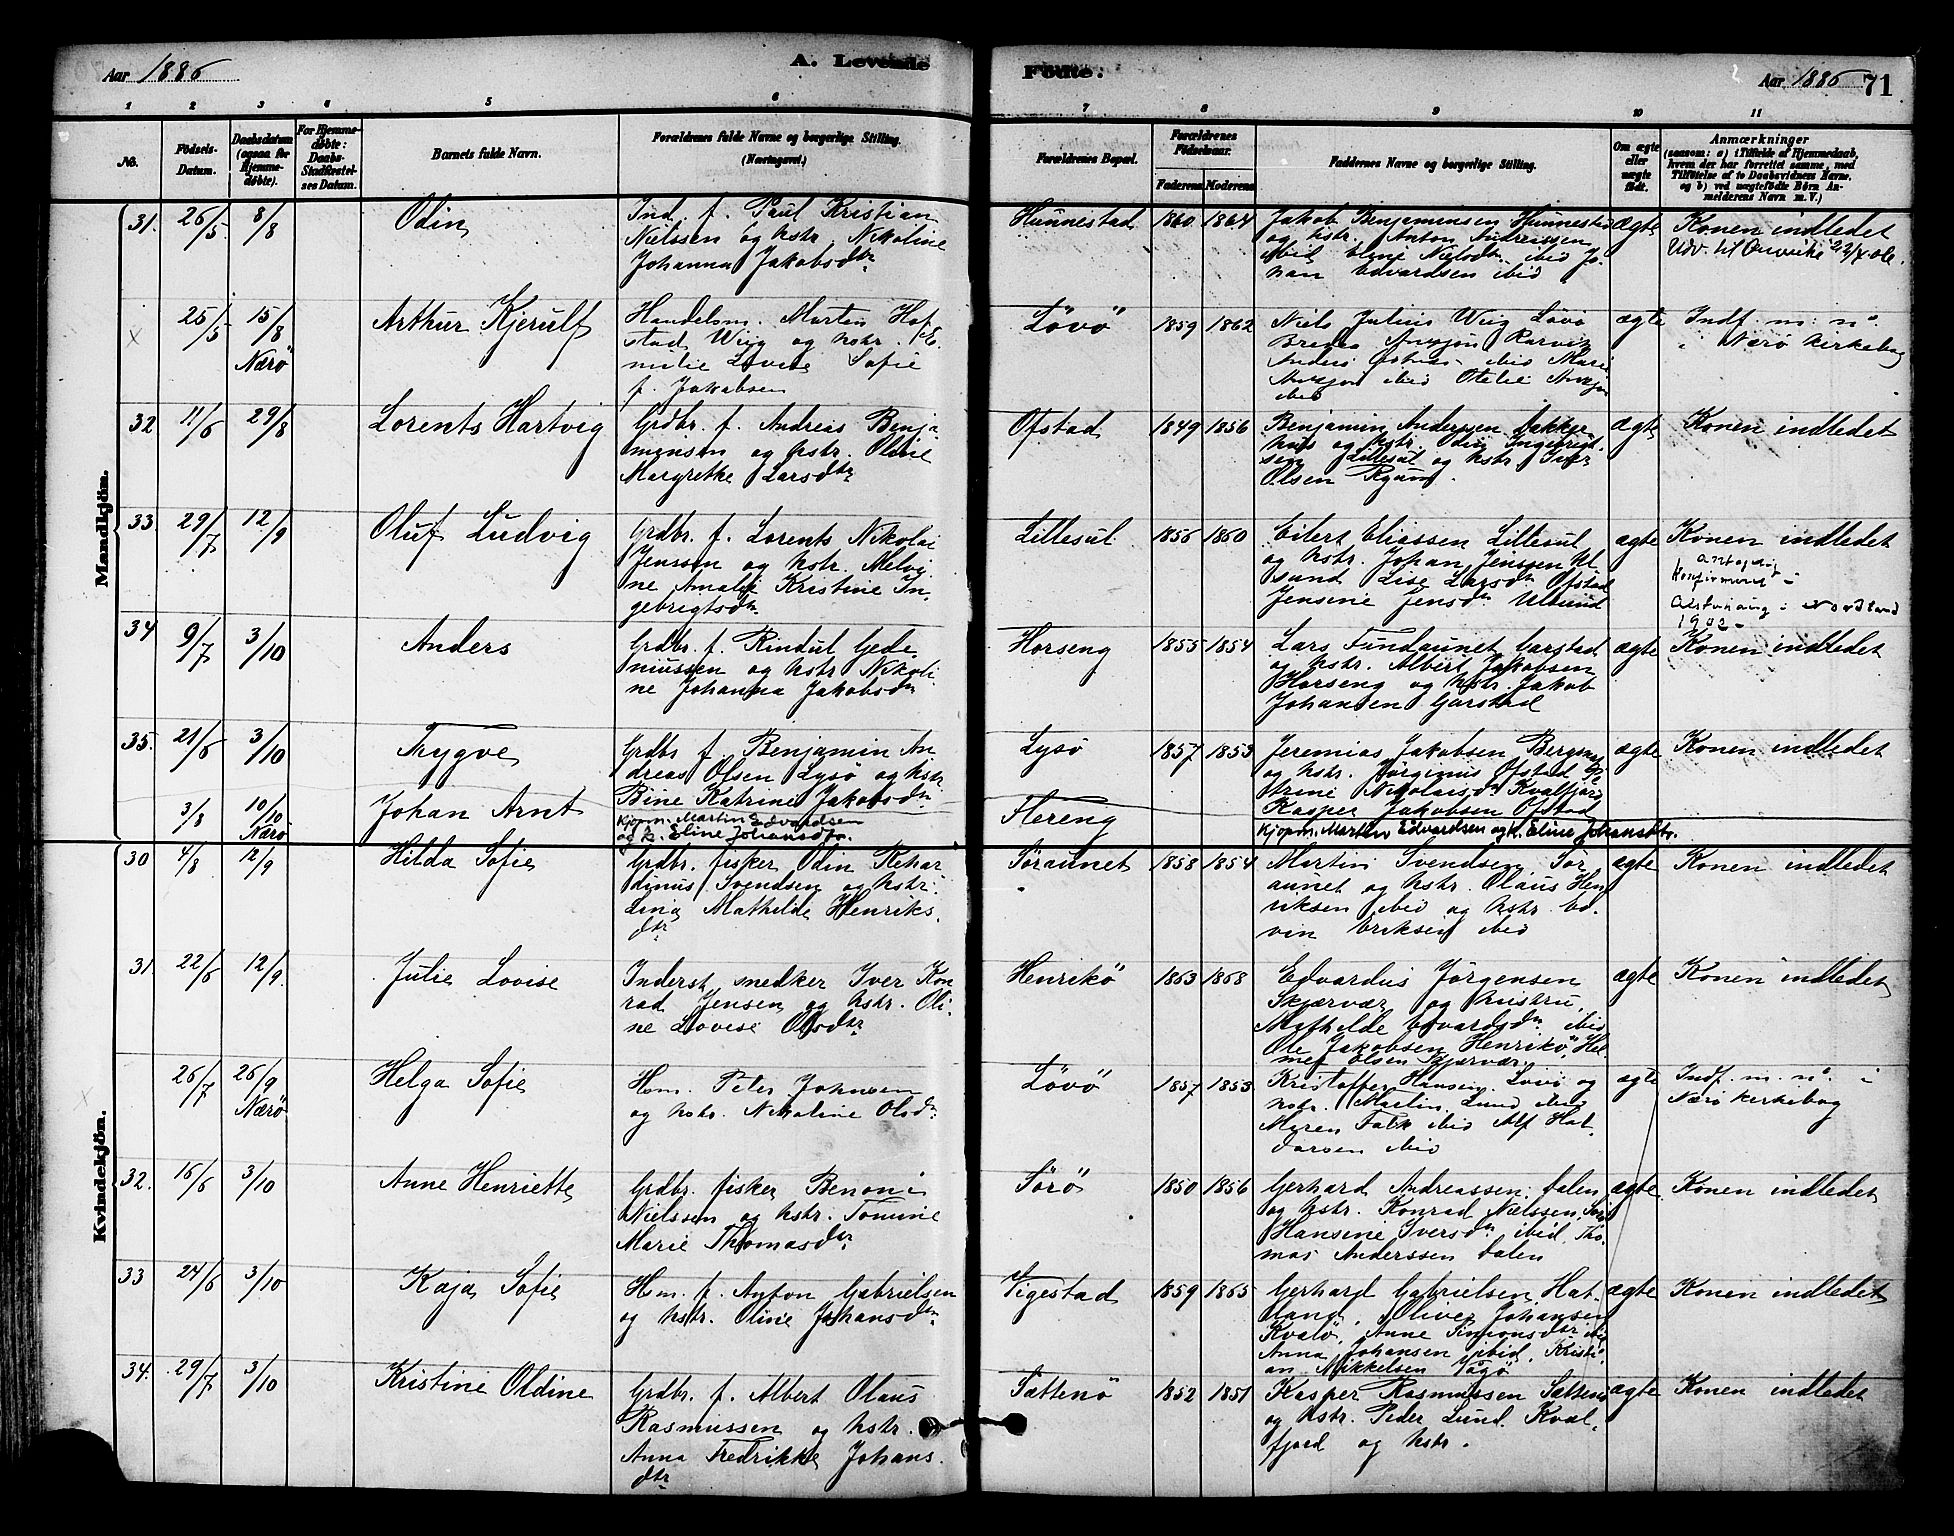 Aar 1886
A. Levende
Födte.
Aar 1886
71
1 2 3 4 5 6 7 8 9 10 11
No.
Födsels-
Datum.
Daabsdatum
(ogsaa for
Hjemme-
döbte).
For Hjemme-
döbte:
Daabs-
Stadfæstel-
ses Datum.
Barnets fulde Navn.
Forældrenes fulde Navne og borgerlige Stilling.
(Næringsvei.)
Forældrenes Bopæl.
Forældrenes
Födselsaar.
Faderens Moderens
Faddernes Navne og borgerlige Stilling.
Om ægte
eller
uægte
födt.
Anmærkninger
(saasom: a) i Tilfælde af Hjemmedaab,
hvem der har forrettet samme, med
Tilföielse af to Daabsvidners Navne,
og b) ved uægtefödte Börn An-
melderens Navn m. V.)
Mandkjön.
31. 26/5 8/8
Odin
Ind. f. Paul Kristian
Nielssen og hstr. Nikoline
Johanna Jakobsdtr
Hunnestad
1860 1864
Jakob Benjaminsen Hunnestad
og hstr. Anton Andreassen
ibid Nielsdtr ibid Jo-
han Edvardsen ibid
ægte
Konen indledet
Udv. til
25/5 15/8
Nærö
Arthur Kjerulf
Handelsm. Martin Hof-
stad Wiig og hstr. E-
milie Lovise Sofie
f. Jakobsen
Lövö
1859 1862
Niels Julius Wiig Lövö
Rörvik
Anders ibid Marie
ibid Otelie
ibid
ægte
Indf. m. no.
i Nærö kirkebog
32 11/6 29/8
Lorents Hartvig
Grdbr. f. Andreas Benja-
minsen og hstr. Oline
Margrethe Larsdtr
Ofstad
1849 1856
Benjamin Anderssen Bakke
hus og hstr. Odin Ingebrigt-
sen Lillesul og hstr. Iver
Olsen
ægte
Konen indledet
33. 29/7 12/9
Oluf Ludvig
Grdbr. f. Lorents Nikolai
Jenssen og hstr. Melvi-
ne Amalie Kristine In-
gebrigtsdtr
Lillesul
1856 1860
Eilert Eliassen Lillesul
og hstr. Johan Jenssen Ul-
sund Lise Larsdtr Ofstad
Jensine Jensdtr Ulsund
ægte
Konen indledet
antagelig
konfirmeret i
Alstahaug i Nordland
1902
34 9/7 3/10
Anders
Grdbr. f. Rindul Gede-
niussen og hstr Nikoli-
ne Johanna Jakobsdtr
Horseng
1855 1854
Lars Fundaunet Garstad
og hstr. Albert Jakobsen
Horseng og hstr. Jakob
Johansen Garstad
ægte
Konen indledet
35. 21/6 3/10
Trygve
Grdbr f. Benjamin An-
dreas Olsen Lysö og hstr
Bine Katrine Jakobsdtr
Lysö
1857 1853
Jeremias Jakobsen
og hstr. Jörginus Ofstad Pe-
trine Nikolaisdtr Kvalfjord
Kasper Jakobsen Ofstad
ægte
Konen indledet
3/8 10/10
Nærö
Johan Arnt
Kjøpm. Martin Edvardsen
og h. Eline Johansdtr.
Flereng
Kjøpm. Martin Edvardsen og h. Eline Johansdtr.
Kvindekjön.
30 4/8 12/9
Hilda Sofie
Grdbr. fisker Odin Rikar
dinus Svendsen og hstr
Lina Mathilde Henriks-
dtr
Söraunet
1858 1854
Martin Svendsen Sör-
aunet og hstr. Olaus Hen
riksen ibid og hstr. Ed-
vin Eriksen ibid
ægte
Konen indledet
31 22/6 12/9.
Julie Lovise
Inderst, snedker Iver Kon
rad Jensen og hstr. Oli-
ne Lovise Olsdtr
Henrikö
1863 1868
Edvardus Jörgensen
Skjærvær og hustru,
Mathilde Edvardsdtr ibid
Ole Jakobsen Henrikö, Hel-
mer Olsen Skjærvær.
ægte
Konen indledet
26/7 26/9
Nærö
Helga Sofie
Hm. Peter Johnsen
og hstr. Nikoline Olsdtr
Lövö
1857 1853
Kristoffer Hansen Lövö og
hstr. Martin Lund ibid
Maren Falk ibid Alf Hal-
dorsen ibid
ægte
Indf. m. no. i
Nærö kirkebog
32. 16/6 3/10
Anne Henriette
Grdbr. fisker Benoni
Nielssen og hstr. Tomine
Marie Thomasdtr
Sörö
1850 1856
Gerhard Andreassen Dalen
og hstr. Konrad Nielssen, Sörö
Hansine Iversdtr ibid, Tho-
mas Anderssen Dalen
ægte
Konen indledet
33 24/6 3/10
Kaja Sofie
Hm. f. Anton Gabrielsen
og hstr. Oline Johansdtr
Vigestad
1859 1865
Gerhard Gabrielsen Hat-
land, Oliver Johansen
Kvalö, Anne Simonsdtr ibid
Anna Johansen ibid, Kristi-
an Mikkelsen Vågö
ægte
Konen indledet
34. 29/7 3/10
Kristine Oldine
Grdbr. f. Albert Olaus
Rasmussen og hstr.
Anna Fredrikke Johans-
dtr
Sættenö
1852 1851
Kasper Rasmussen Sættenö
og hstr. Peder Lund. Kval-
fjord og hstr.
ægte
Konen indledet